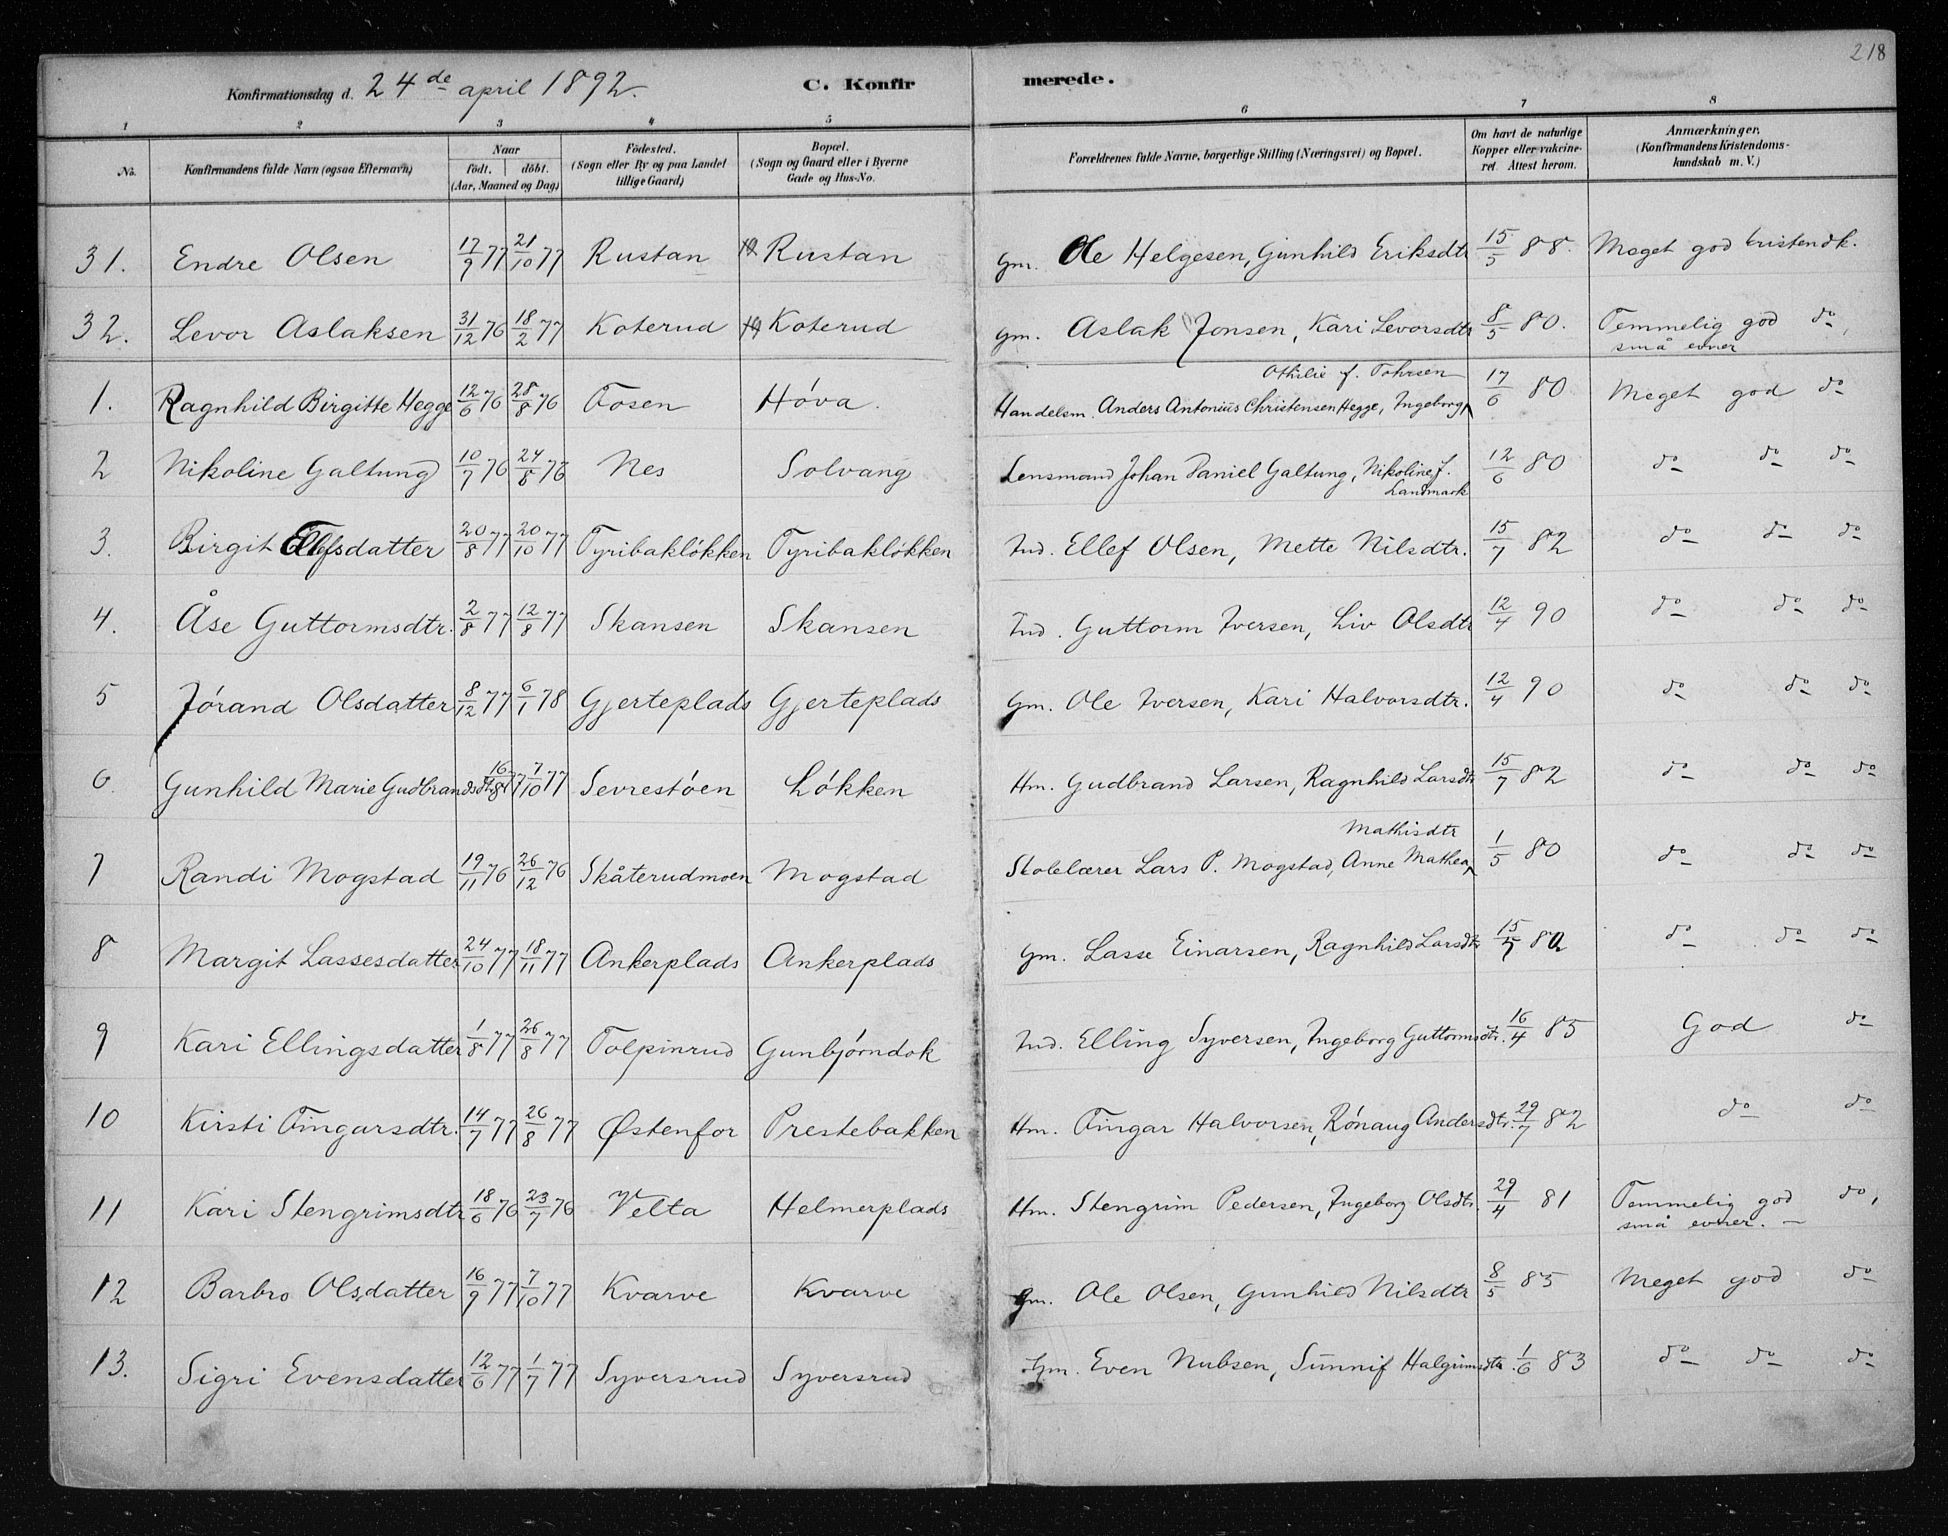 218
Konfirmationsdag d. 24de april 1892. C. Konfirmerede.
1 2 3 4 5 6 7 8
No. Konfirmandens fulde Navn (ogsaa Efternavn) Naar födt. döbt. (Aar, Maaned og Dag) Födested. (Sogn eller By og paa Landet tillige Gaard) Bopæl. (Sogn og Gaard eller i Byerne Gade og Hus-No. Forældrenes fulde Navne, borgerlige Stilling (Næringsvei) og Bopæl. Om havt de naturlige Kopper eller vakcineret. Attest herom. Anmærkninger, (Konfirmandens Kristendomskundskab m. V.)
31. Endre Olsen 17/9 77 21/10 77 Rustan Rustan Gm. Ole Helgesen, Gunhild Eriksdtr 15/5 88. Meget god kristendk.
32. Levor Aslaksen 31/12 76 18/2 77 Koterud Koterud Gm. Aslak Jonsen, Kari Levorsdtr 8/5 80. Temmelig god do, små evner
1. Ragnhild Birgitte Hegge 12/6 76 28/8 76 Fosen Hóva. Handelsm. Anders Antoniüs Christensen Hegge, Ingeborg Othilie f. Tohrsen 17/6 80 Meget god do
2 Nikoline Galtung 10/7 76 24/8 76 Nes Solvang Lensmand Johan Daniel Galtung, Nikoline f. Landmark 12/6 80 do do do
3. Birgit Ellefsdatter 20/8 77 20/10 77 Tyribaklókken Tyribaklókken Ind. Ellef Olsen, Mette Nilsdtr. 15/7 82 do do do
4. Åse Guttormsdtr. 2/8 77 12/8 77 Skansen Skansen Ind. Guttorm Iversen, Liv Olsdtr 12/4 90 do do do
5 Jórand Olsdatter 8/12 77 6/1 78 Gjerteplads Gjerteplads Gm. Ole Iversen, Kari Halvorsdtr. 12/4 90 do do do
6. Gunhild Marie Gudbrandsdtr 16/8 77 7/10 77 Sevrestóen Lókken Hm. Gudbrand Larsen, Ragnhild Larsdtr 15/7 82 do do do
7 Randi Mogstad 19/11 76 26/12 76 Skåterudmoen Mogstad Skolelærer Lars P. Mogstad, Anne Mathea Mathisdtr 1/5 80 do do do
8 Margit Lassesdatter 24/10 77 18/11 77 Ankerplads Ankerplads Gm. Lasse Einarsen, Ragnhild Larsdtr 15/7 82 do do do
9 Kari Ellingsdatter 1/8 77 26/8 77 Tolpinrud Gunbjórndok Ind. Elling Syversen, Ingeborg Guttormsdtr. 16/4 85 God do
10 Kirsti Fingarsdtr. 14/7 77 26/8 77 Østenfor Prestebakken Hm. Fingar Halvorsen, Rónaug Andersdtr. 29/7 82 do do
11 Kari Stengrimsdtr 18/6 76 23/7 76 Velta Helmerplads Hm. Stengrim Pedersen, Ingeborg Olsdtr. 29/4 81 Temmelig god do, små evner.
12 Barbro Olsdatter 16/9 77 7/10 77 Kvarve Kvarve Gm. Ole Olsen, Gunhild Nilsdtr 8/5 85 Meget god do
13. Sigri Evensdatter 12/6 77 1/7 77 Syversrud Syversrud Gm. Even Nubsen, Sünnif Halgrimsdtr. 1/6 83 do do do